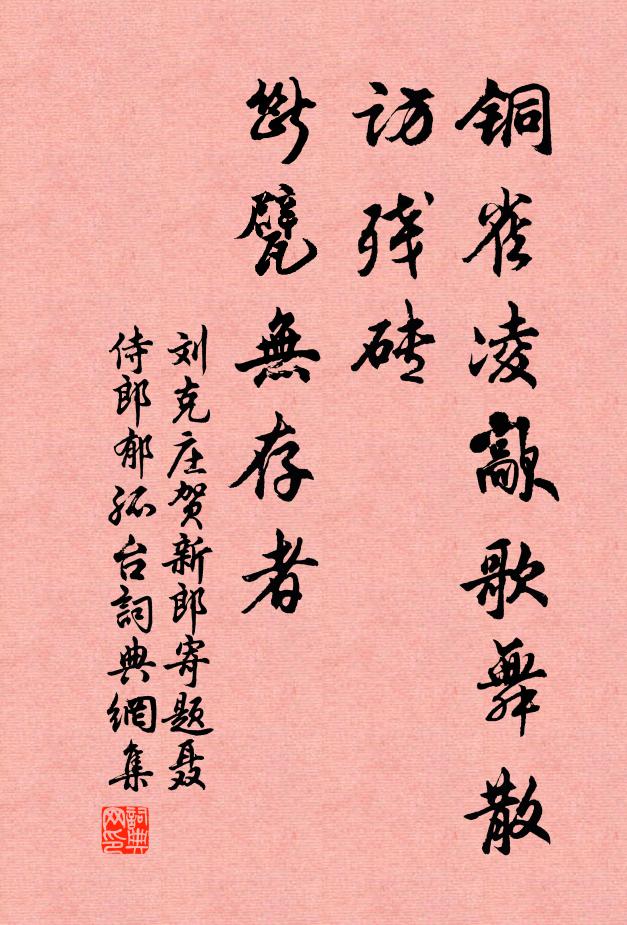 铜雀凌歊歌舞散
访残砖
断甓無存者
刘克庄贺新郎寄题聂
侍郎郁孤台詞典網集
詞典网印